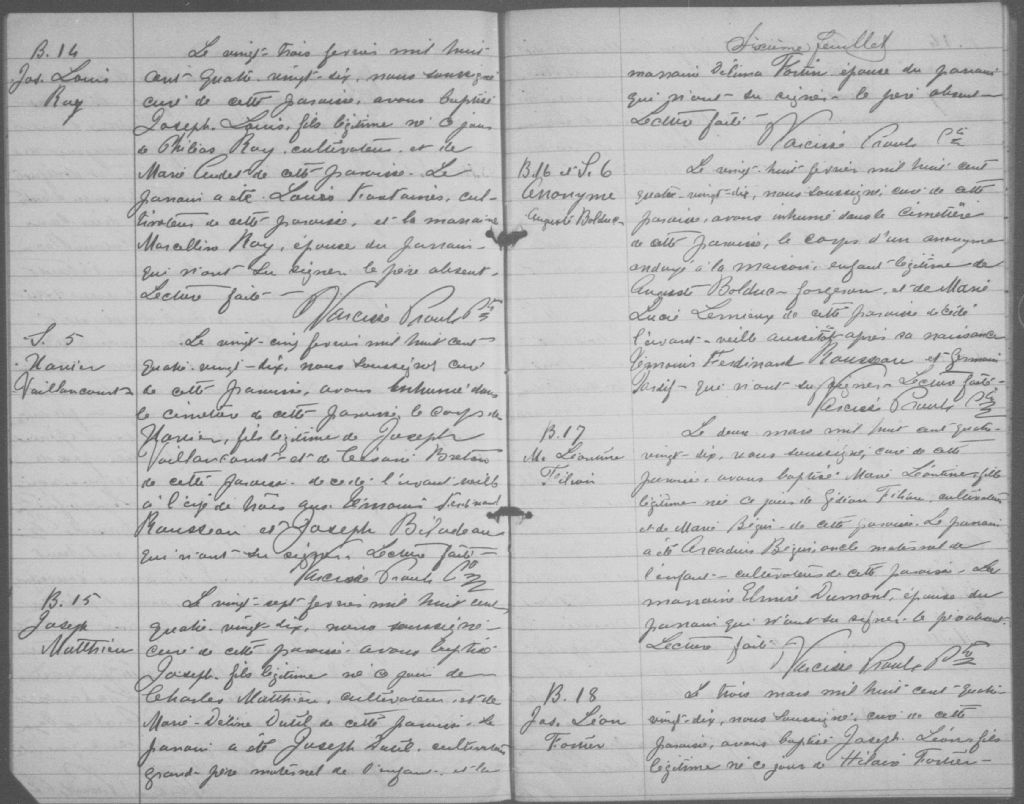 B. 14
Jos. Louis
Roy
Le vingt-trois fevrier mil huit
cent quatre-vingt-dix, nous soussigné
curé de cette paroisse, avons baptisé
Joseph-Louis, fils légitime né ce jour
de Philias Roy, cultivateur et de
Marie Audet de cette paroisse. Le
parrain a été Louis Fontaine, cul-
tivateur de cette paroisse, et la marraine
Marcelline Roy, épouse du parrain
qui n'ont su signer le père absent.
Lecture faite
Narcisse Proulx Ptre
S. 5
Xavier
Vaillancourt
Le vingt-cinq fevrier mil huit cent
quatre-vingt-dix, nous soussigné curé
de cette paroisse, avons inhumé dans
le cimetière de cette paroisse, le corps de
Xavier, fils légitime de Joseph
Vaillancourt et de Césarie Breton
de cette paroisse décédé l'avant-veille
à l'age de trois ans. Témoins Ferdinand
Rousseau et Joseph Bilodeau
qui n'ont su signer. Lecture faite
Narcisse Proulx Ptre
B. 15
Joseph
Matthieu
Le vingt-sept fevrier mil huit cent
quatre-vingt-dix, nous soussigné
curé de cette paroisse avons baptisé
Joseph, fils légitime né ce jour de
Charles Matthieu, cultivateur et de
Marie-Deline Dutil de cette paroisse. Le
parrain a été Joseph Dutil, cultivateur
grand-père maternel de l'enfant et la
Sixième feuillet
marraine Delima Fortin épouse du parrain
qui n'ont su signer le père absent
Lecture faite
Narcisse Proulx Ptre
B. 16 et S. 6
Anonyme
Auguste Bolduc
Le vingt-huit fevrier mil huit cent
quatre-vingt-dix, nous soussigné curé de cette
paroisse, avons inhumé dans le cimetière
de cette paroisse, le corps d'un anonyme
ondoyé à la maison, enfant légitime de
Auguste Bolduc forgeron, et de Marie
Lucie Lemieux de cette paroisse décédé
l'avant-veille aussitôt après sa naissance
Témoins Ferdinand Rousseau et Germain
Tardif qui n'ont su signer. Lecture faite
Narcisse Proulx Ptre
B. 17
M. Léontine
Filion
Le deux mars mil huit cent quatre-
vingt-dix, nous soussigné, curé de cette
paroisse, avons baptisé Marie Léontine, fille
légitime née ce jour de Gédéon Filion, cultivateur
et de Marie Bégin de cette paroisse. Le parrain
a été Arcadius Bégin oncle maternel de
l'enfant cultivateur de cette paroisse. La
marraine Elmire Dumont, épouse du
parrain qui n'ont su signer le père absent.
Lecture faite
Narcisse Proulx Ptre
B. 18
Jos. Léon
Fortier
Le trois mars mil huit cent quatre-
vingt-dix, nous soussigné, curé de cette
paroisse, avons baptisé Joseph-Léon, fils
légitime né ce jour de Hilaire Fortier